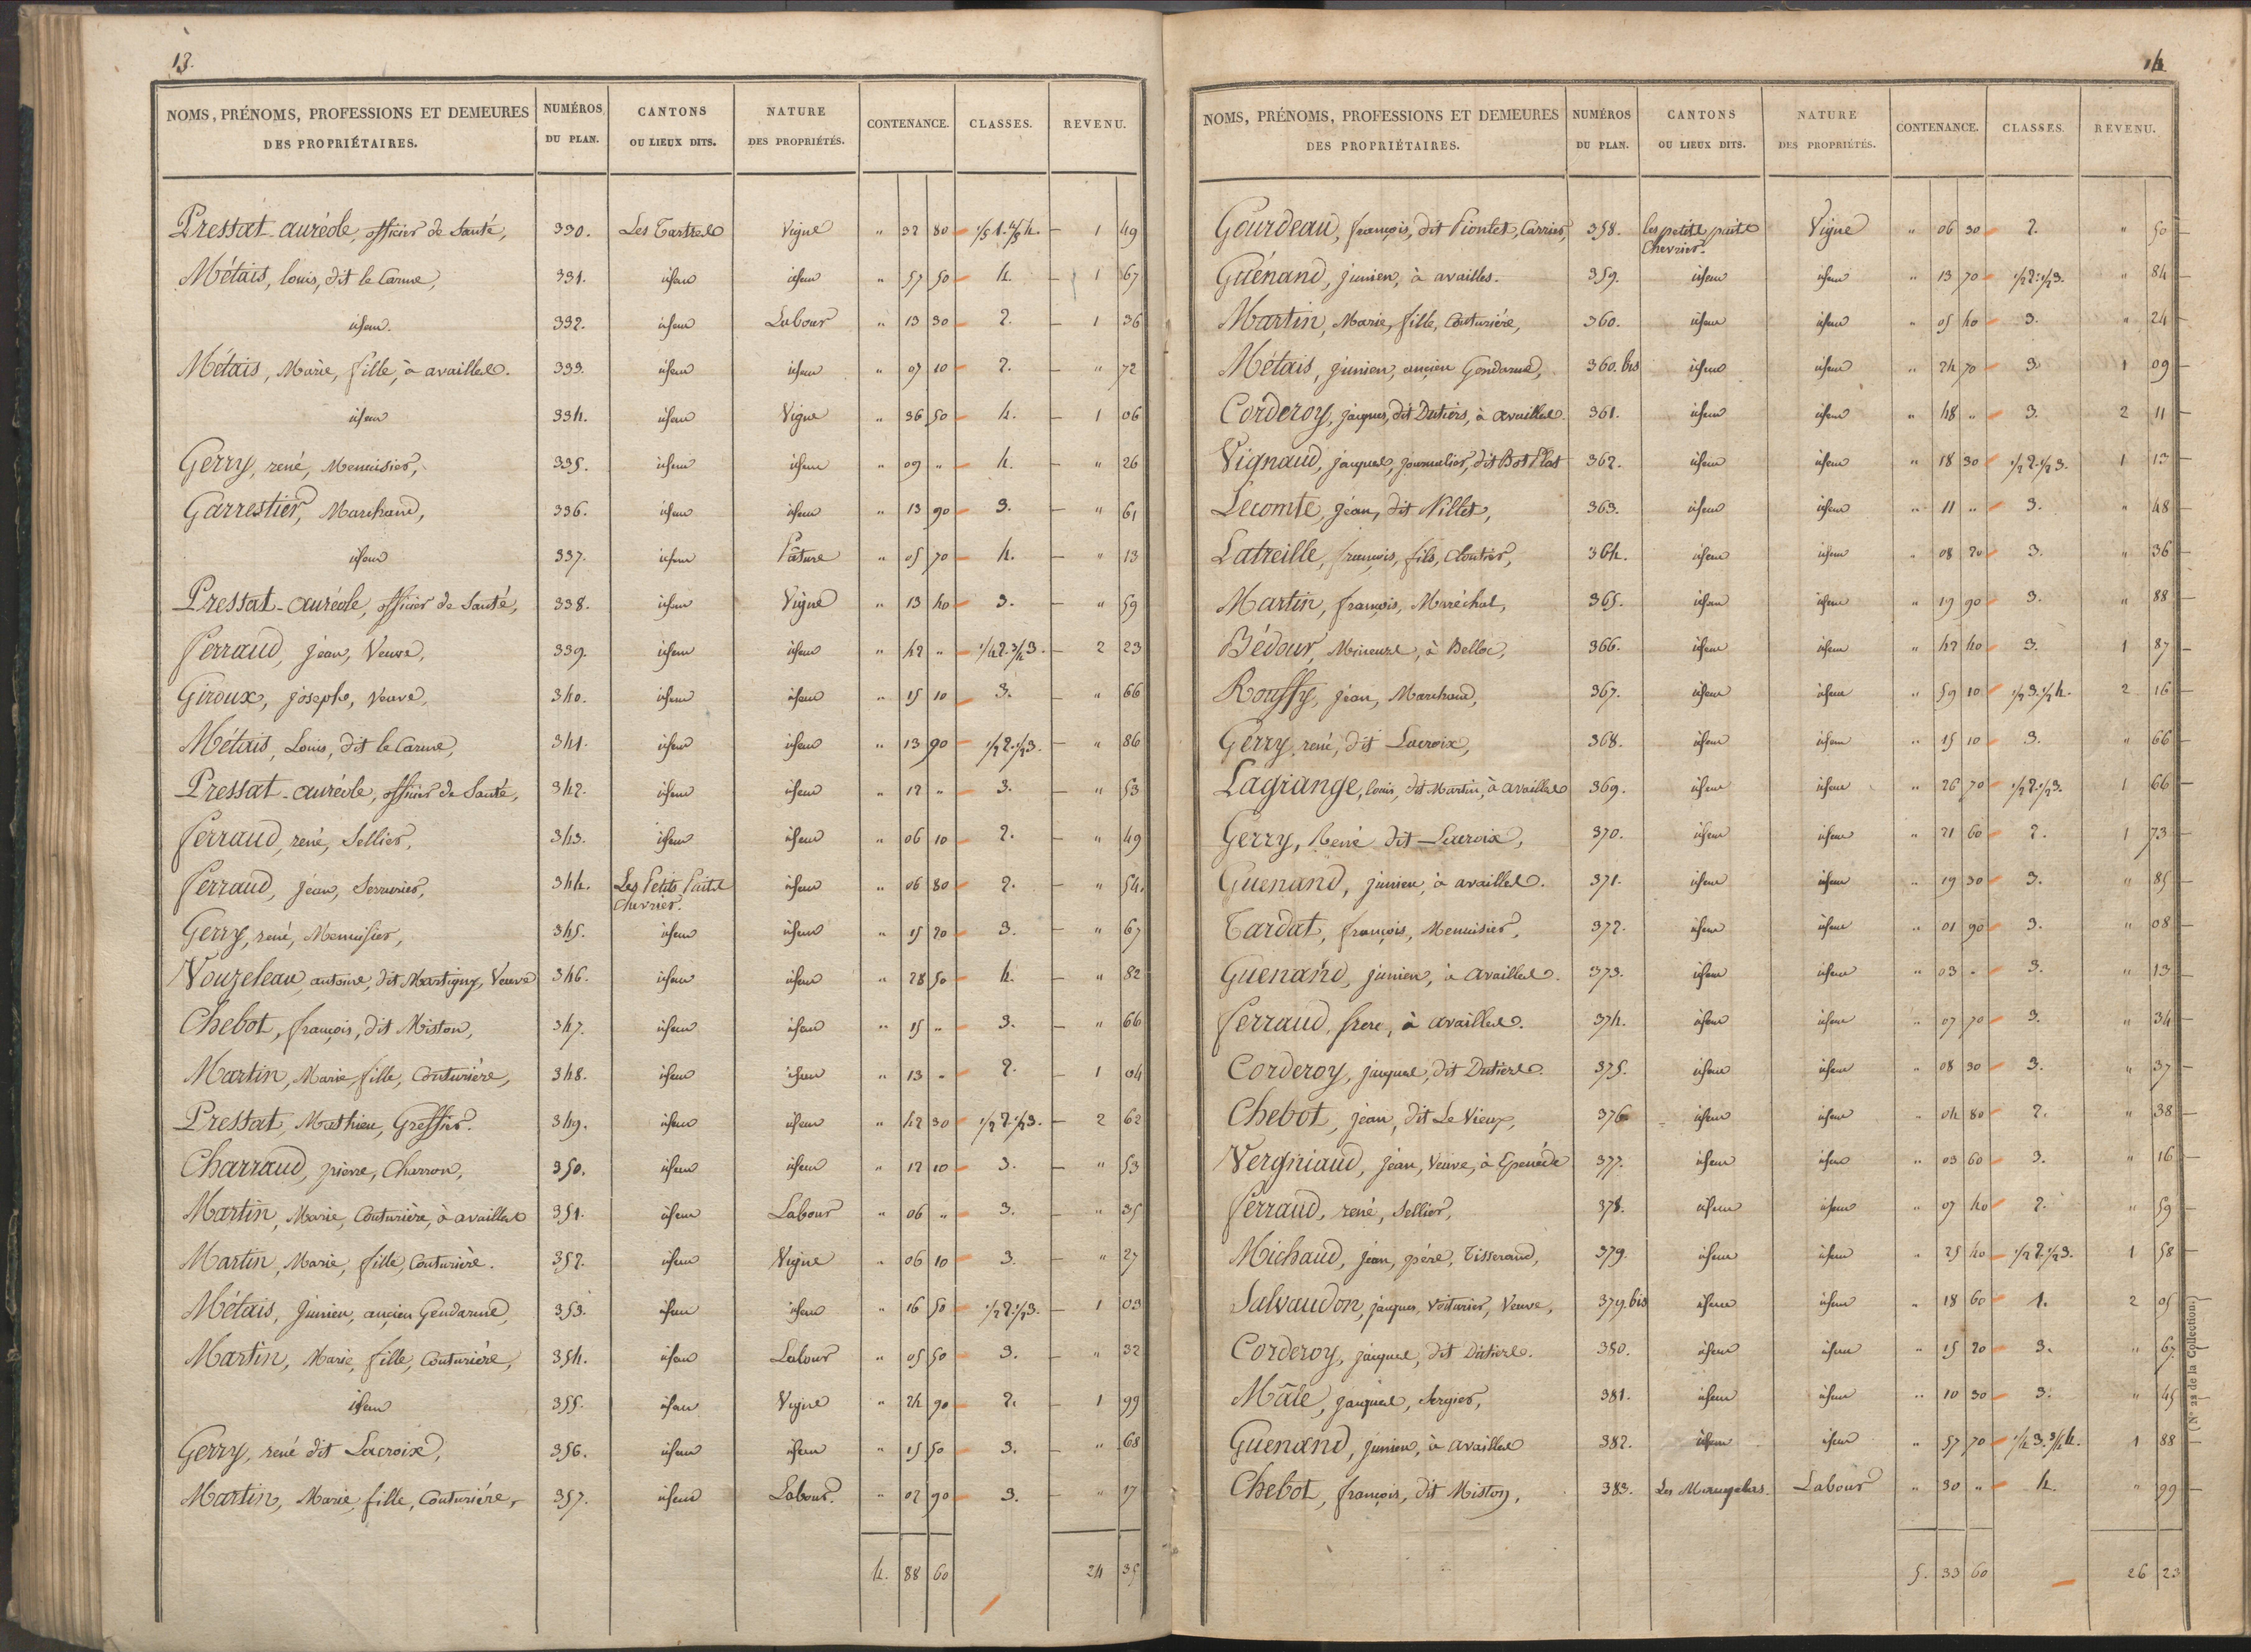 13.
NOMS, PRÉNOMS, PROFESSIONS ET DEMEURES DES PROPRIÉTAIRES. NUMÉROS DU PLAN. CANTONS OU LIEUX DITS. NATURE DES PROPRIÉTÉS. CONTENANCE. CLASSES. REVENU.
Pressat-auréole, officier de Santé, 330. Les Tartres Vigne " 32 80 1/5 1. 4/5 4. 1 49
Métais, louis, dit le Carme, 331. idem idem " 57 50 4. 1 67
idem. 332. idem Labour " 13 30 2. 1 36
Métais, Marie, fille, à availles. 333. idem idem " 07 10 2. " 72
idem 334. idem Vigne " 36 50 4. 1 06
Gerry, rené, Menuisier, 335. idem idem " 09 " 4. " 26
Garrestier, Marchand, 336. idem idem " 13 90 3. " 61
idem 337. idem Pâture " 05 70 4. " 13
Pressat-auréole, officier de Santé, 338. idem Vigne " 13 40 3. " 59
Ferraud, Jean, Veuve, 339. idem idem " 42 " 1/4 2. 3/4 3. 2 23
Giroux, joseph, Veuve, 340. idem idem " 15 10 3. " 66
Métais, Louis, dit le Carme, 341. idem idem " 13 90 1/2 2. 1/2 3. " 86
Pressat-auréole, officier de Santé, 342. idem idem " 12 " 3. " 53
Ferraud, rené, Sellier, 343. idem idem " 06 10 2. " 49
Ferraud, Jean, Serrurier, 344. Les Petits Paits Chevrier. idem " 06 80 2. " 54.
Gerry, rené, Menuisier, 345. idem idem " 15 20 3. " 67
Vouzeleau, antoine, dit Martigny, Veuve 346. idem idem " 28 50 4. " 82
Chebot, françois, dit Miston, 347. idem idem " 15 " 3. " 66
Martin, Marie, fille, Couturière, 348. idem idem " 13 " 2. 1 04
Pressat, Mathieu, Greffier. 349. idem idem " 42 30 1/2 2. 1/2 3. 2 62
Charraud, pierre, Charron, 350. idem idem " 12 10 3. " 53
Martin, Marie, Couturière, à availles 351. idem Labour " 06 " 3. " 35
Martin, Marie, fille, Couturière. 352. idem Vigne " 06 10 3. " 27
Métais, Junien, ancien Gendarme, 353. idem idem " 16 50 1/2 2. 1/2 3. 1 03
Martin, Marie, fille, Couturière, 354. idem Labour " 05 50 3. " 32
idem 355. idem Vigne " 24 90 2. 1 99
Gerry, rené dit Lacroix, 356. idem idem " 15 50 3. " 68
Martin, Marie fille, Couturière, 357. idem Labour. " 02 90 3. " 17
4. 88 60 24 35
14
NOMS, PRÉNOMS, PROFESSIONS ET DEMEURES DES PROPRIÉTAIRES. NUMÉROS DU PLAN. CANTONS OU LIEUX DITS. NATURE DES PROPRIÉTÉS. CONTENANCE. CLASSES. REVENU.
Gourdeau, françois, dit Piontet, Carrier, 358. les petits paits Chevrier. Vigne " 06 30 2. " 50
Guénand, junien, à availles. 359. idem idem " 13 70 1/2 2. 1/2 3. " 84
Martin, Marie, fille, Couturière, 360. idem idem " 05 40 3. " 24
Métais, junien, ancien Gendarme, 360. bis idem idem " 24 70 3. 1 09
Corderoy, jacques, dit Dutiers, à availles. 361. idem idem " 48 " 3. 2 11
Vignaud, jacques, journalier, dit Bot Plat 362. idem idem " 18 30 1/2 2. 1/2 3. 1 13
Lecomte, jean, dit Nillet, 363. idem idem " 11 " 3. " 48
Latreille, françois, fils, Cloutier, 364. idem idem " 08 20 3. " 36
Martin, françois, Maréchal, 365. idem idem " 19 90 3. " 88
Bédour, Mineure, à Belloc, 366. idem idem " 42 40 3. 1 87
Rouffy, jean, Marchand, 367. idem idem " 59 10 1/2 3. 1/2 4. 2 16
Gerry, rené, dit Lacroix, 368. idem idem " 15 10 3. " 66
Lagrange, louis, dit Martin, à availles 369. idem idem " 26 70 1/2 2. 1/2 3. 1 66
Gerry, René dit Lacroix, 370. idem idem " 21 60 2. 1 73
Guenand, junien, à availles. 371. idem idem " 19 30 3. " 85
Tardat, françois, Menuisier, 372. idem idem " 01 90 3. " 08
Guenand, junien, à availles. 373. idem idem " 03 " 3. " 13
Ferraud, frere, à availles. 374. idem idem " 07 70 3. " 34
Corderoy, jacques, dit Dutiers. 375. idem idem " 08 30 3. " 37
Chebot, jean, dit Le Vieux, 376 idem idem " 04 80 2. " 38
Vergniaud, jean, Veuve, à Epenède 377. idem idem " 03 60 3. " 16
Ferraud, rené, Sellier, 378. idem idem " 07 40 2. " 59
Michaud, jean, père, Tisserand, 379. idem idem " 25 40 1/2 2. 1/2 3. 1 58
Salvaudon, jacques, Voiturier, Veuve, 379. bis idem idem " 18 60 1. 2 05
Corderoy, jacques, dit Dutiers. 380. idem idem " 15 20 3. " 67
Mâle, jacques, Sergier, 381. idem idem " 10 30 3. " 45
Guenand, junien, à availles 382. idem idem " 57 70 1/4 3. 3/4 4. 1 88
Chebot, françois, dit Miston, 383. Les Maugelas. Labour " 30 " 4. " 99
5. 33 60 26 23
(N° 22 de la Collection.)